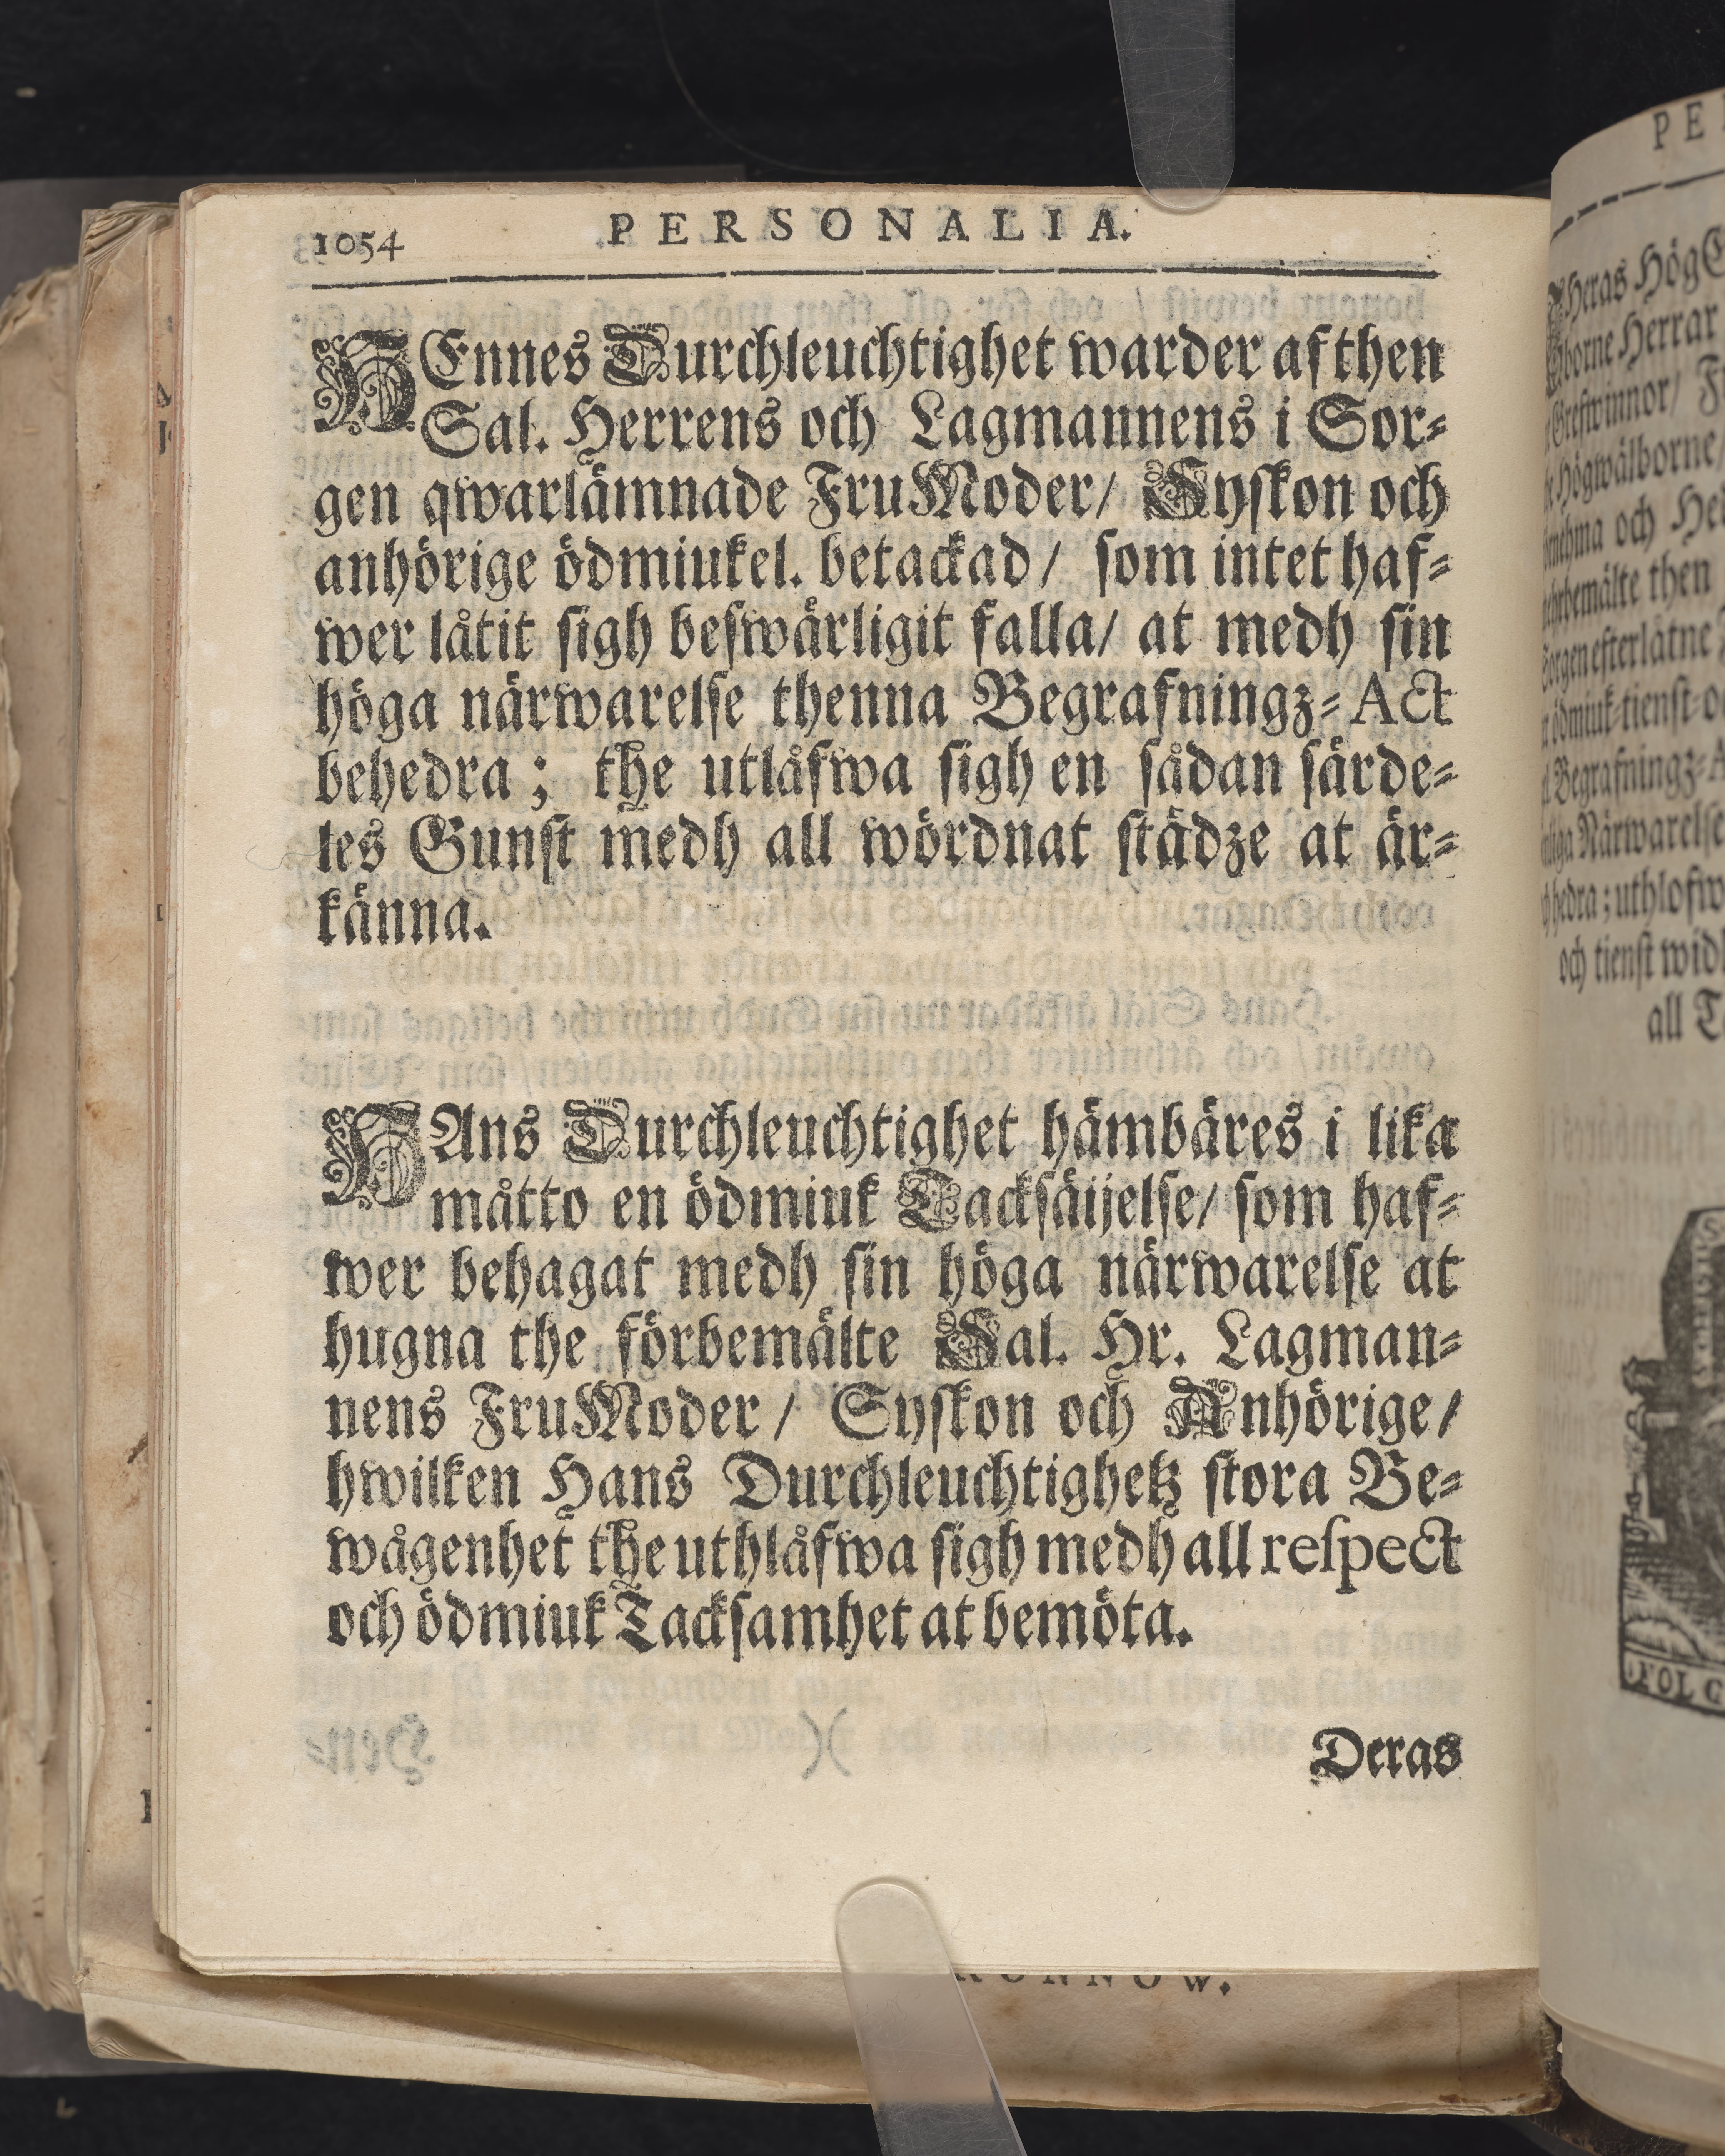 1054 PERSONALIA.
HEnnes Durchleuchtighet warder af then
Sal. Herrens och Lagmannens i Sor-
gen qwarlämnade FruModer/ Syskon och
anhörige ödmiukel. betackad/ som intet haf-
wer låtit sigh beswärligit falla/ at medh sin
höga närwarelse thenna Begrafningz-Act
behedra; the utlåfwa sigh en sådan särde-
les Gunst medh all wördnat städze at är-
känna.
HAns Durchleuchtighet hämbäres i lika
måtto en ödmiuk Tacksäijelse/ som haf-
wer behagat medh sin höga närwarelse at
hugna the förbemälte Sal. Hr. Lagman-
nens FruModer/ Syskon och Anhörige/
hwilken Hans Durchleuchtighetz stora Be-
wågenhet the uthlåfwa sigh medh all respect
och ödmiuk Tacksamhet at bemöta.
Deras
PE
Theras Hög
borne Herrar
Grefwinnor/
Högwälborne
och
then
efterlåtne
ödmiuk-tienst
Begrafningz-
Närwarelse
hedra; uthlofw
och tienst widh
all